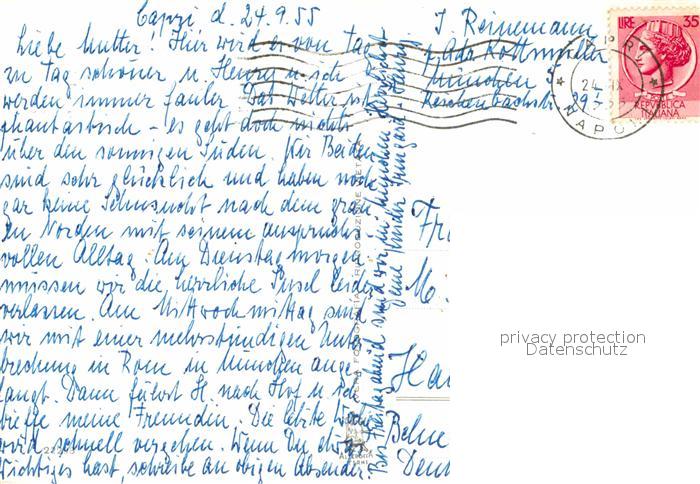 Capri d. 24.9.55
Liebe Mutter! Hier wird es von Tag
zu Tag schöner u. Henry u. ich
werden immer fauler. Das Wetter ist
phantastisch - es geht doch nichts
über den sonnigen Süden. Wir Beiden
sind sehr glücklich und haben noch
gar keine Sehnsucht nach dem grau-
en Norden mit seinem anspruchs-
vollen Alltag. Am Dienstagmorgen
müssen wir die herrliche Insel leider
verlassen. Am Mittwochmittag sind
wir mit einer mehrstündigen Unter-
brechung in Rom in München ange-
langt. Dann fährt H. nach Hof u. ich
treffe meine Freundin. Die letzte Woche
wird schnell vergehen. Wenn Du etwas
Wichtiges hast, schreibe an obigen Absender.
Bis Freitagabend sind wir in München. Herzlichst
Deine Kinder Irmgard + Henry
I. Reinemann
b. Ada Rottmüller
München 5
Reichenbachstr.
Fr
M.
Ha
Deut
LIRE 35
REPVBBLICA
ITALIANA
CAPRI
24 IX
NAPOLI
VERA FOTOGRAFIA RIPRODUZIONE VIETATA
privacy protection
Datenschutz